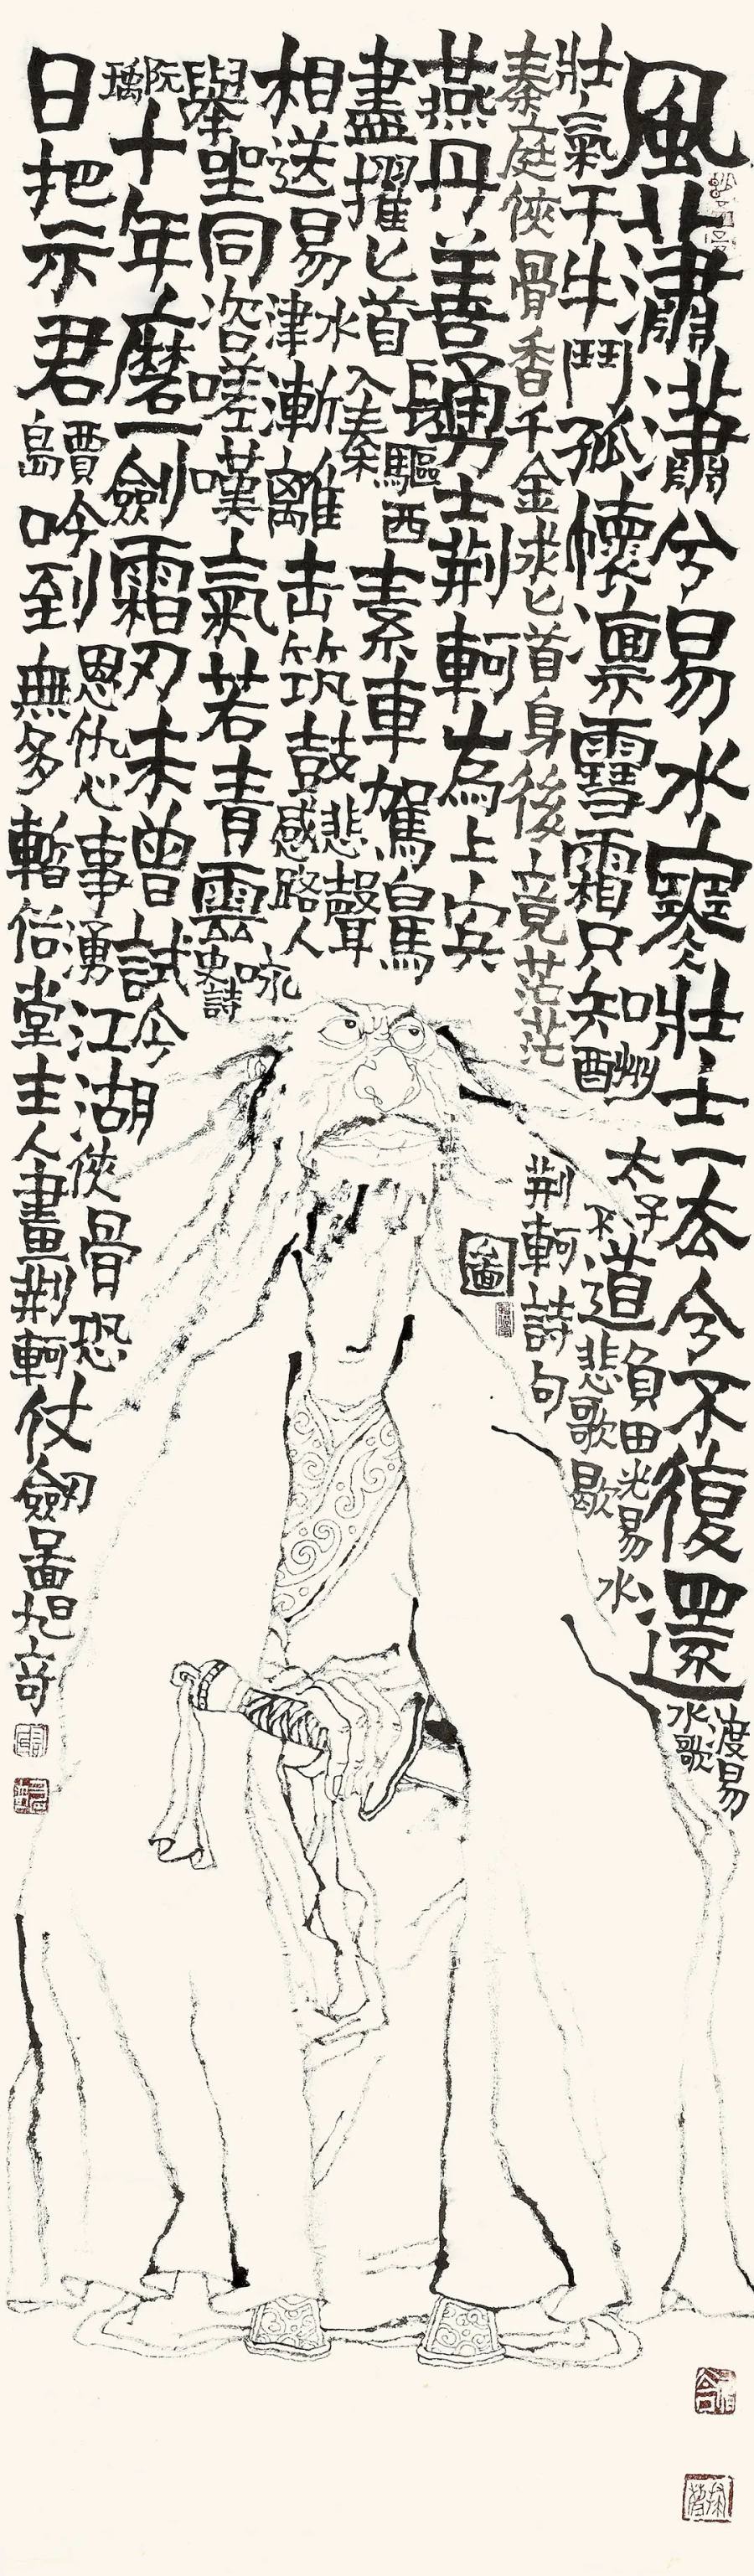 風蕭蕭兮易水寒壯士一去兮不復還
渡易水歌
壯氣干牛鬥孤懷凛雪霜只知酬太子不道負田光易水悲歌歇
秦庭俠骨香千金求匕首身後竟茫茫
荊軻詩句
燕丹善勇士荊軻為上賓
盡擢匕首長驅西入秦素車駕白馬
相送易水津漸離击筑鼓悲聲感路人
舉坐同咨嗟嘆氣若青雲
阮瑀
詠史詩
十年磨一劍霜刃未曾試今
日把示君
賈島
吟到恩仇心事湧江湖俠骨恐
無多暫借堂主人畫荊軻仗劍圖旭奇